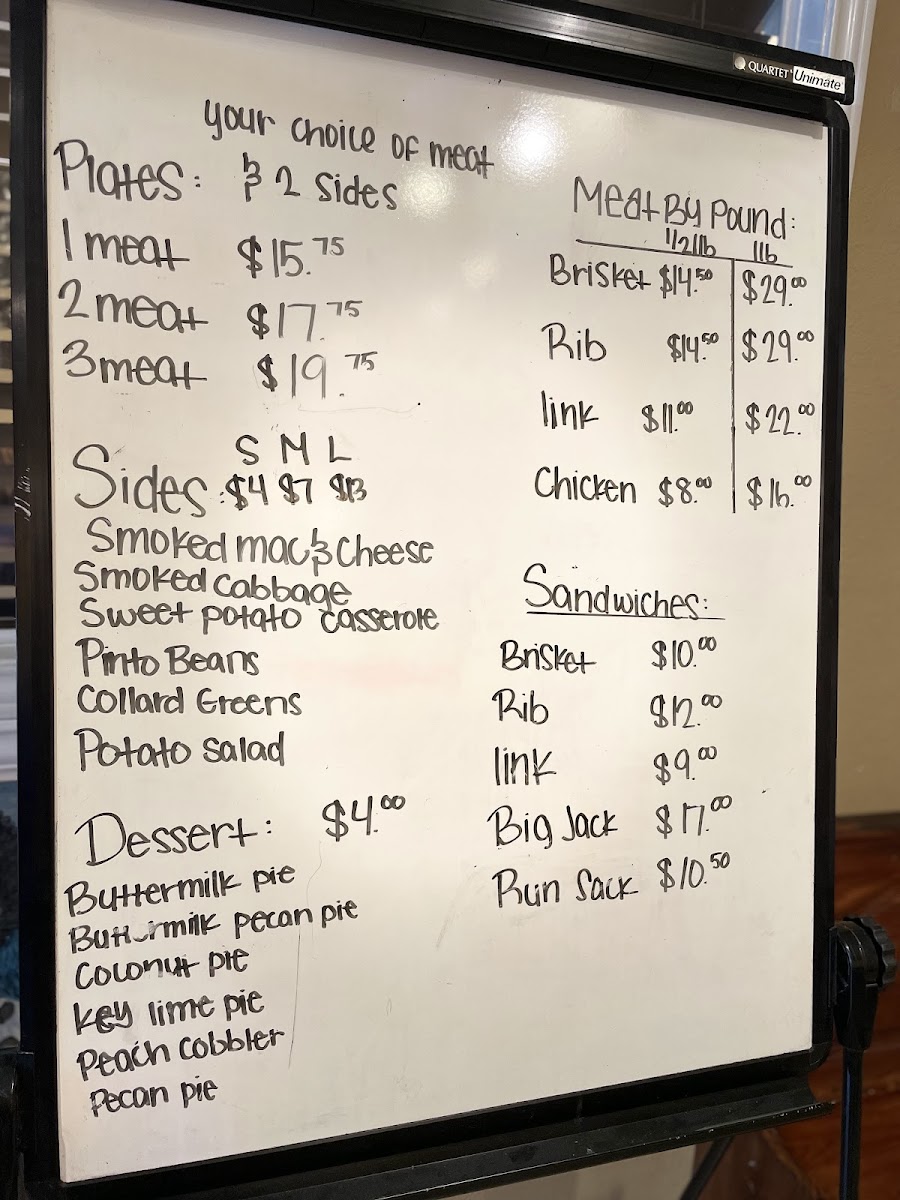 QUARTET Unimate
your choice of meat
Plates: & 2 Sides
1 meat $15.75
2 meat $17.75
3 meat $19.75
S M L
Sides: $4 $7 $13
Smoked mac & Cheese
Smoked Cabbage
Sweet potato casserole
Pinto Beans
Collard Greens
Potato Salad
Dessert: $4.00
Buttermilk pie
Buttermilk pecan pie
Coconut pie
key lime pie
Peach cobbler
Pecan pie
Meat By Pound:
1/2 lb 1lb
Brisket $14.50 $29.00
Rib $14.50 $29.00
link $11.00 $22.00
Chicken $8.00 $16.00
Sandwiches:
Brisket $10.00
Rib $12.00
link $9.00
Big Jack $17.00
Run Sack $10.50